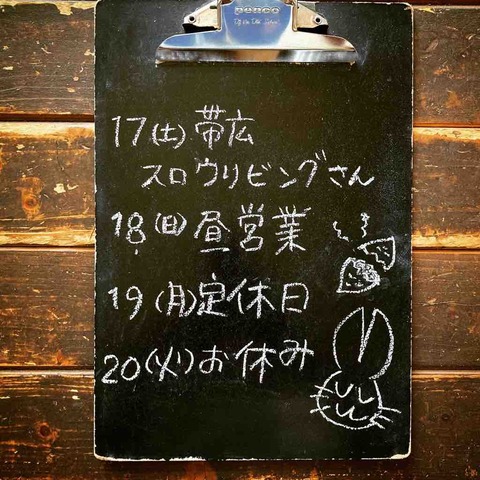 penco
17(土)帯広
スロウリビングさん
18(日)昼営業
19(月)定休日
20(火)お休み